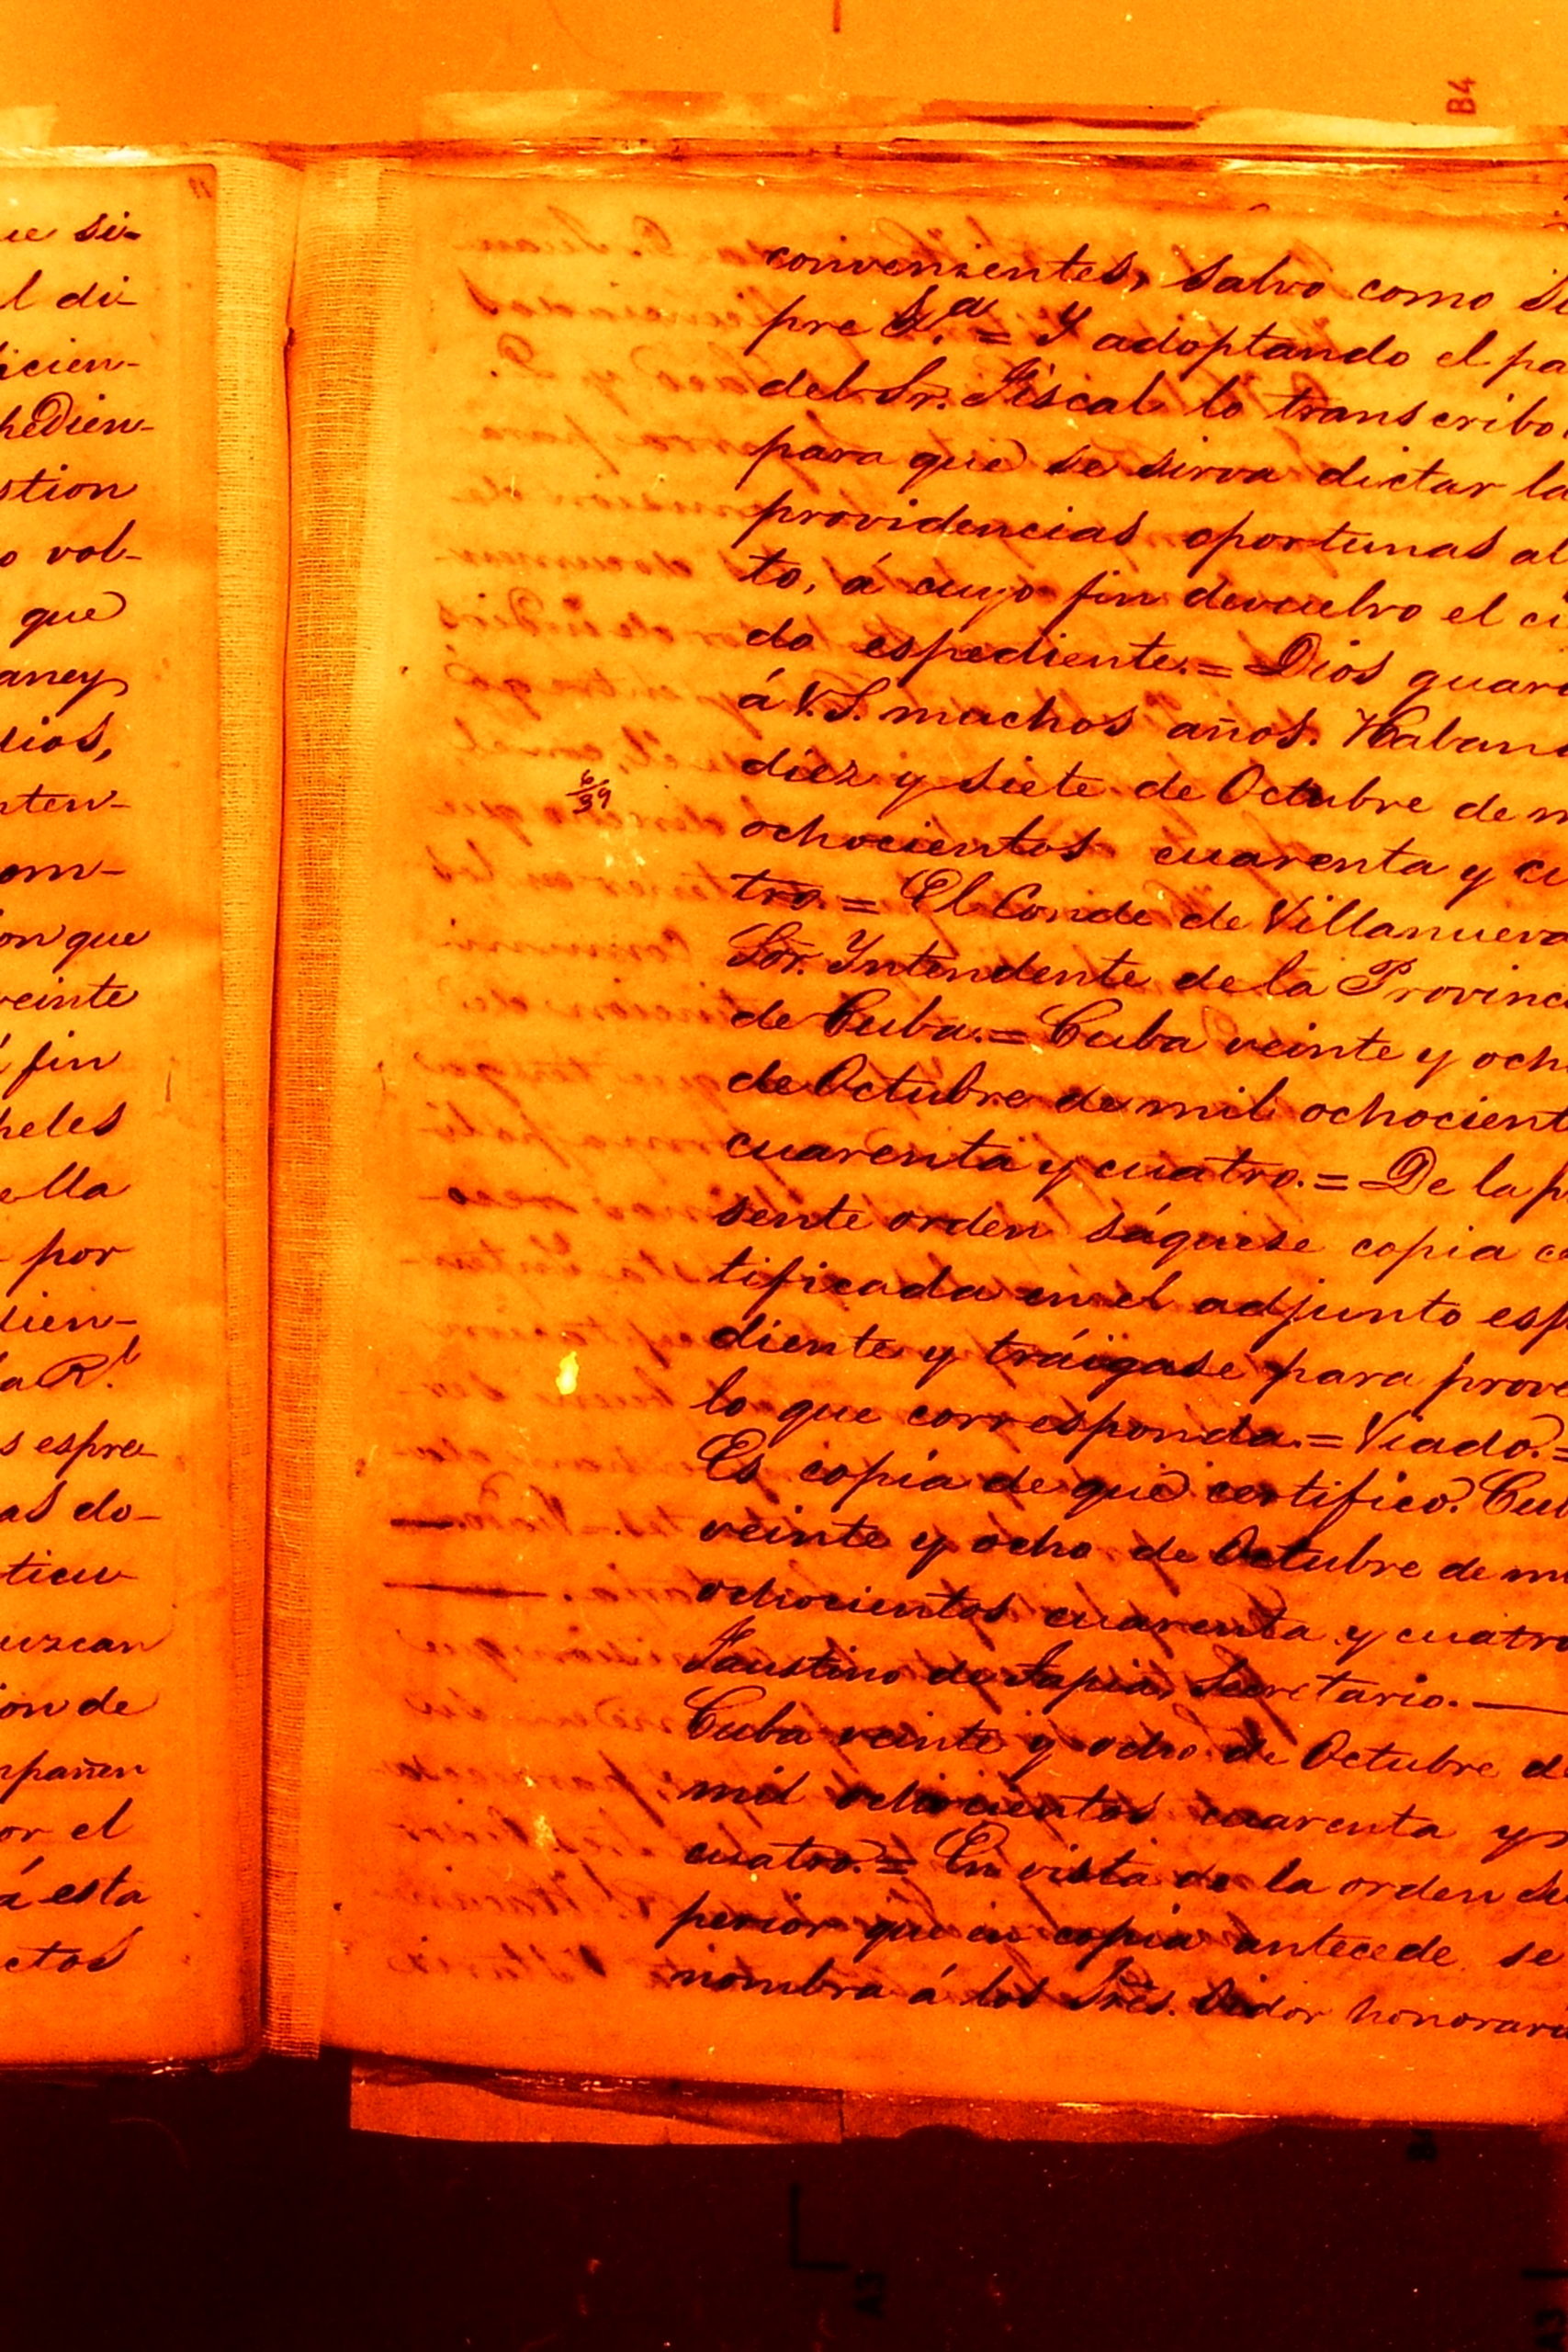 ue si-
l di-
icien-
hedien-
stion
o vol-
que
aney
dios,
nten-
om-
on que
veinte
fin
peles
ella
por
dien-
la Rl.
s espre-
as do-
ticu-
uzcan
ion de
mpañen
or el
á esta
ctos
B4
convenientes, salvo como S
pre S.a = Y adoptando el pa
del Sr. Fiscal lo transcribo
para que se sirva dictar la
providencias oportunas al
to, á cuyo fin devuelvo el ci
do espediente. = Dios guar
á V.S. muchos años. Haban
diez y siete de Octubre de m
6/39
ochocientos cuarenta y cu
tro. = El Conde de Villanueva
Sor. Intendente de la Provinc
de Cuba. = Cuba veinte y och
de Octubre de mil ochocient
cuarenta y cuatro. = De la p
sente orden sáquese copia ce
tificada en el adjunto esp
diente y tráigase para prove
lo que corresponda. = Viado. =
Es copia de que certifico. Cu
veinte y ocho de Octubre de m
ochocientos cuarenta y cuatro
Faustino de Tapia, Secretario. —
Cuba veinte y ocho de Octubre de
mil ochocientos cuarenta y
cuatro. = En vista de la orden Su
perior que en copia antecede se
nombra á los Sres. Oidor honorari
A3
A3